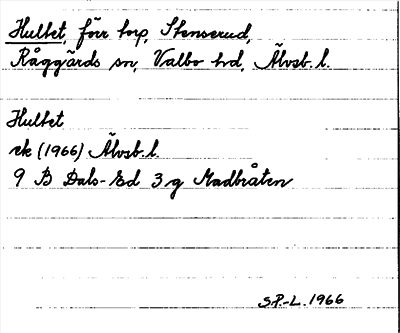 Hultet, förr torp, Stenserud,
Råggärds sn, Valbo hd, Älvsb. l.
Hultet
ek (1966) Älvsb. l.
9 B Dals-Ed 3 g Madbråten
S.P.-L. 1966